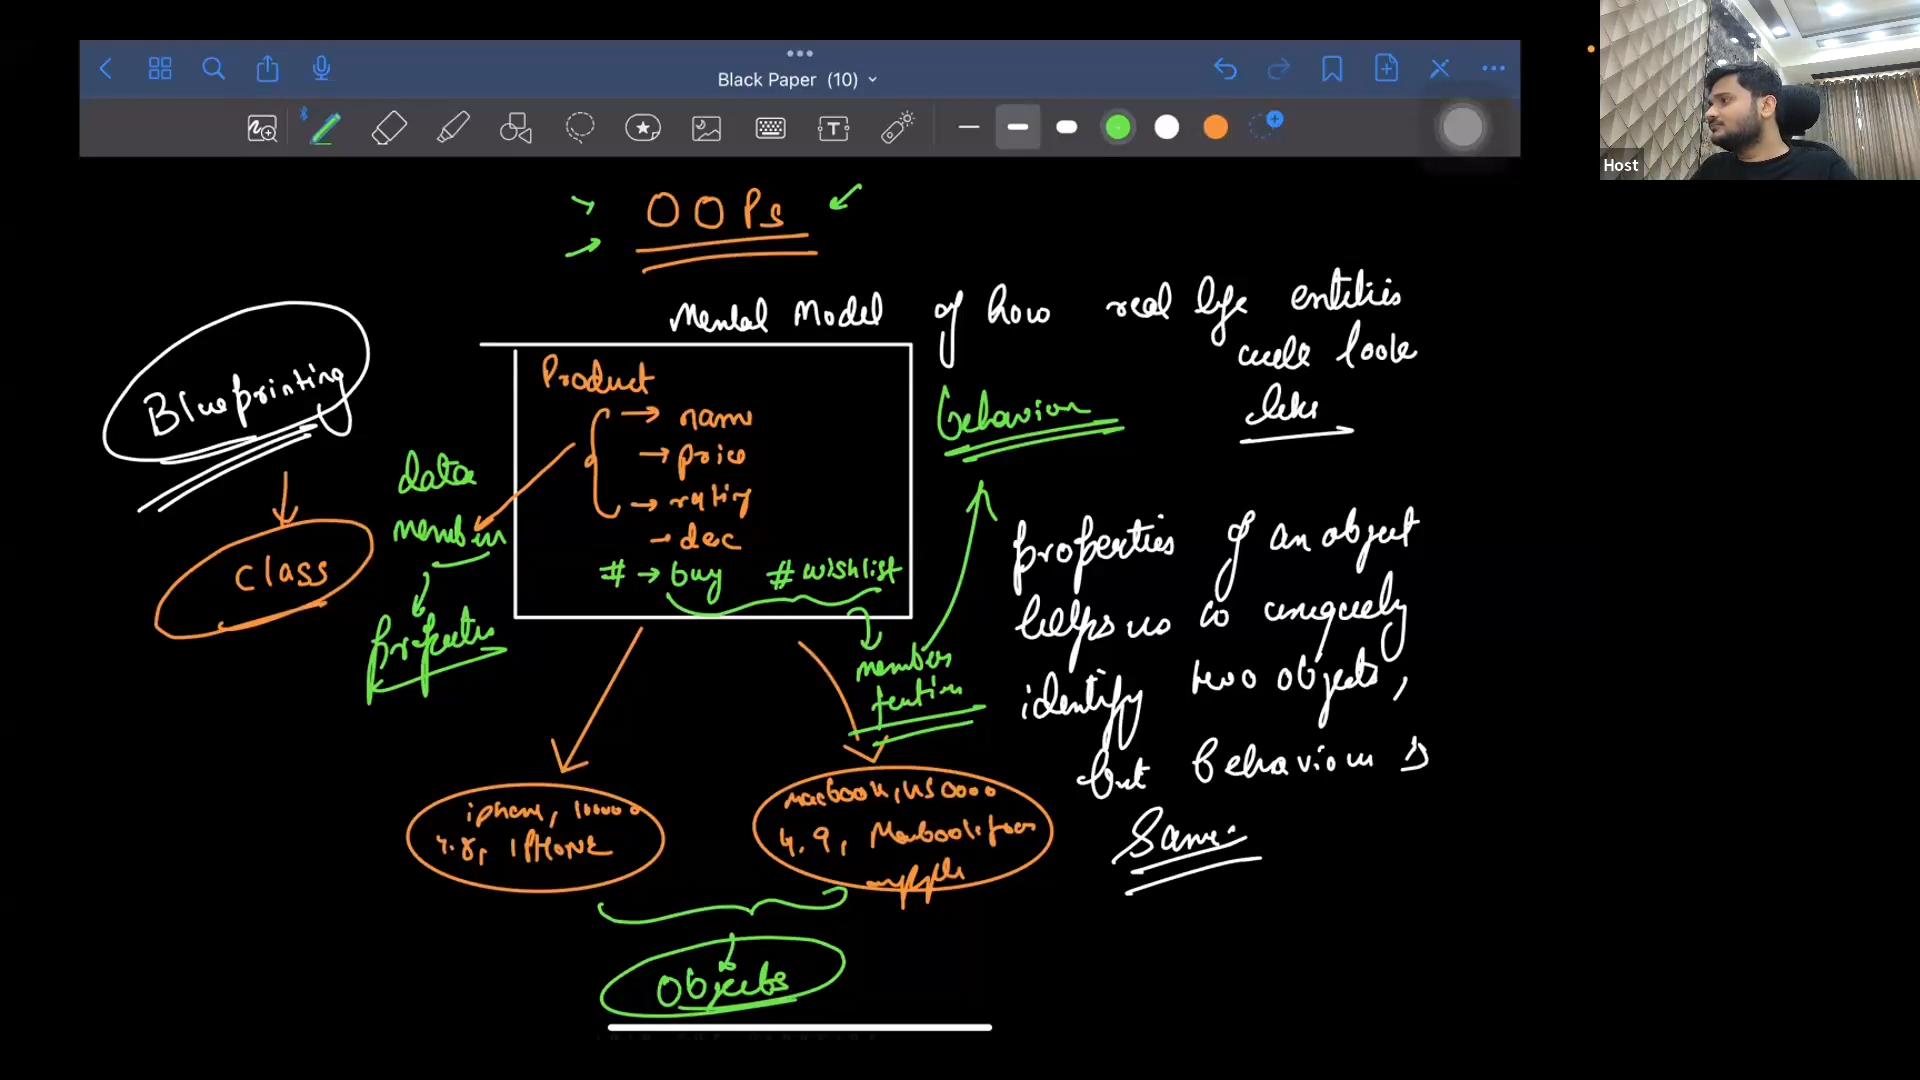 Black Paper (10)
Host
OOPs
Mental Model of how real life entities
look
like
Blueprinting
class
Product
name
price
rating
dec
# → buy # wishlist
data
member
properties
behaviour
member
function
properties of an object
helps us to uniquely
identify two objects,
but behaviour is
Same.
iphone, 100000
4.8, IPHONE
macbook,
4.9, Macbook from
apple
Objects